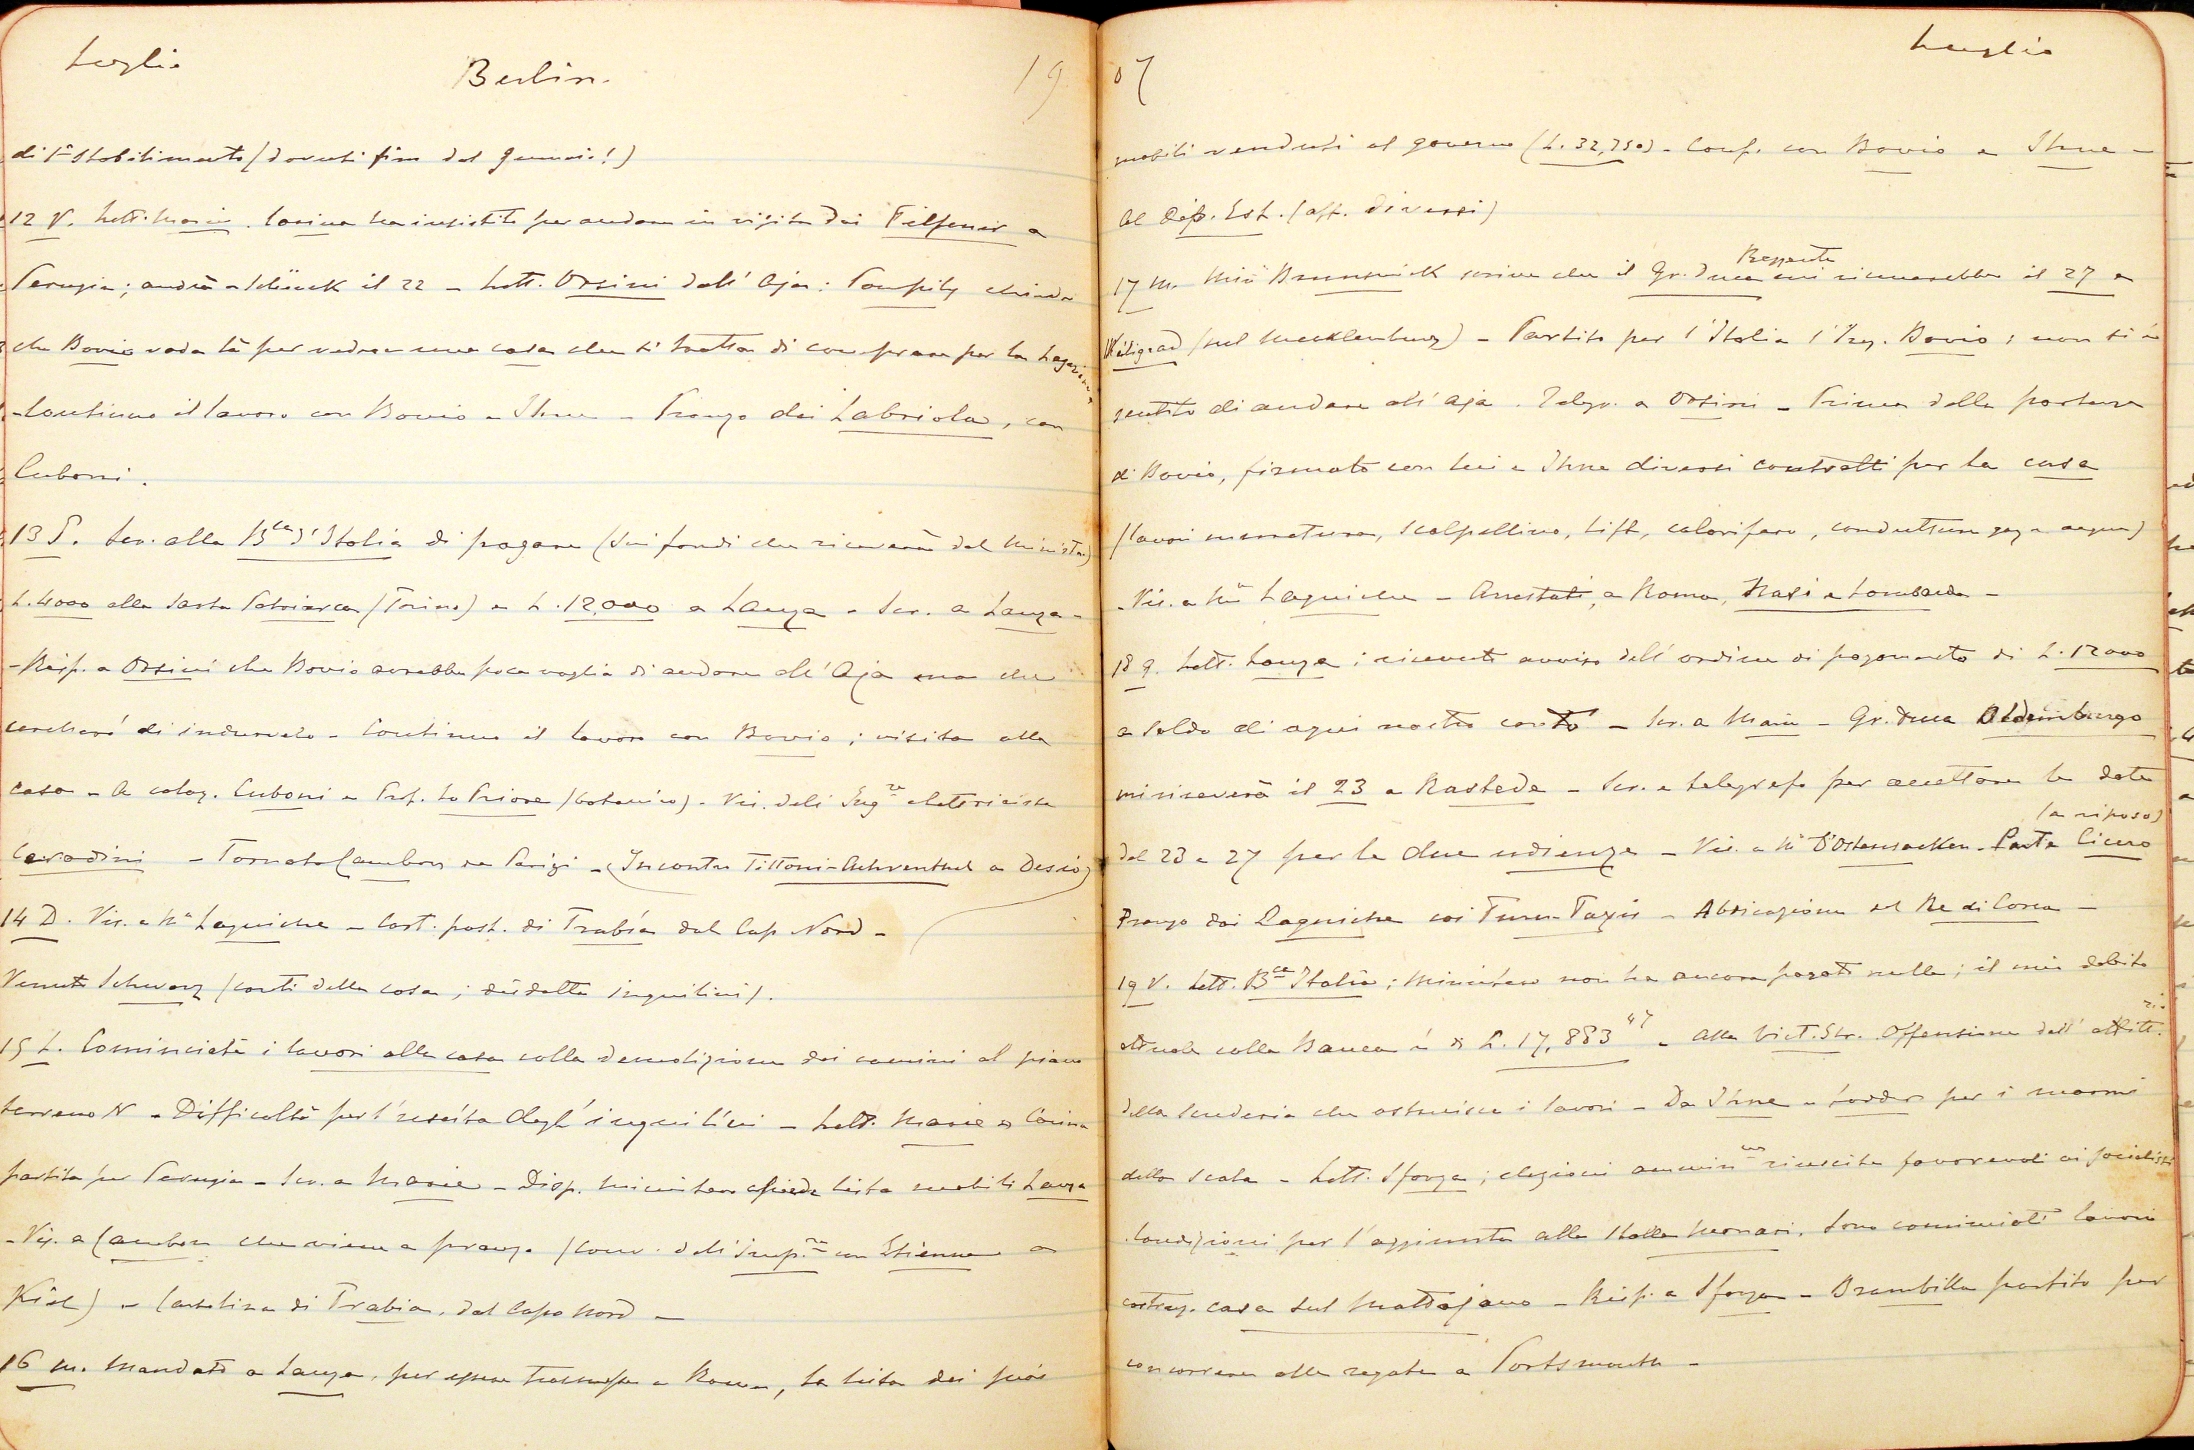 Luglio
Berlin.
19
di 1° stabilimento (dovuti fin dal gennaio!)
12 V. Lett. Marie. Corinna ha insistito per andare in visita dai Filsener a
Perugia; andrà a Schück il 22 - Lett. Orsini dall'Aja: Pompilj chiede
che Bovio vada là per vedere una casa che si tratta di comprare per la Legazione
- Continuo il lavoro con Bovio e Ihne - Pranzo dai Labriola, con
Cuboni.
13 S. Scr. alla Bca d'Italia di pagare (sui fondi che riceverà dal Ministro)
L. 4000 alla Sarta Patriarca (Torino) e L. 12,000 a Lanza - Scr. a Lanza -
- Risp. a Orsini che Bovio avrebbe poca voglia di andare all'Aja ma che
cercherò di indurvelo - Continuo il lavoro con Bovio; visita alla
casa - A colaz. Cuboni e Prof. Lo Priore (botanico) - Vis. dell'Ingre elettricista
Corradini - Tornato Cambon da Parigi - (Incontro Tittoni-Aehrenthal a Desio)
14 D. Vis. a Me Laguiche - Cart. post. di Trabia dal Cap Nord -
Venuto Schwarz (conti della casa; disdette inquilini).
15 L. Cominciati i lavori alla casa colla demolizione dei camini al piano
terreno N - Difficoltà per l'uscita degl'inquilini - Lett. Marie e Corinna
partita per Perugia - Scr. a Marie - Disp. Ministero chiede lista mobili Lanza
- Vis. a Cambon che viene a pranzo (conv. dell'Impre con Etienne a
Kiel) - Cartolina di Trabia, dal Capo Nord -
16 M. Mandato a Lanza, per essere trasmessa a Roma, la lista dei suoi
07
Luglio
mobili venduti al governo (L. 32,750) - Conf. con Bovio e Ihne -
Al Dip. Est. (aff. diversi)
17 M. Min Brunswick scrive che il Gr. Duca Reggente mi riceverebbe il 27 a
Wiligrad (nel Mecklenburg) - Partito per l'Italia l'Ing. Bovio; non si è
sentito di andare all'Aja. Telegr. a Orsini - Prima della partenza
di Bovio, firmato con lui e Ihne diversi contratti per la casa
(lavori muratura, scalpellino, lift, calorifero, condutture gaz e acqua)
- Vis. a Me Laguiche - Arrestati, a Roma, Nasi e Lombardo -
18 G. Lett. Lanza; ricevuto avviso dell'ordine di pagamento di L. 12000
a saldo di ogni nostro conto - Scr. a Marie - Gr. Duca Oldemburgo
mi riceverà il 23 a Rastede - Scr. e telegrafo per accettare le date
del 23 e 27 per le due udienze - Vis. a Me D'Ostensacken - Parte Cicero (a riposo)
Pranzo dai Laguiche coi Turn-Taxis - Abdicazione del Re di Corea -
19 V. Lett. Bca Italia: Ministero non ha ancora pagato nulla; il mio debito
attuale colla Banca è di L. 17,883 47 - Alla Vict. Str. Offensione dell'affitt.rio
della scuderia che ostruisce i lavori - Da Ihne e per i marmi
della scala - Lett. Sforza; elezioni amminive riuscite favorevoli ai socialisti
Condizioni per l'aggiunta alla stalla Mornasi. Sono cominciati lavori
costruz. casa sul Mattajano - Risp. a Sforza - Brambilla partito per
concorrere alle regate a Portsmouth -